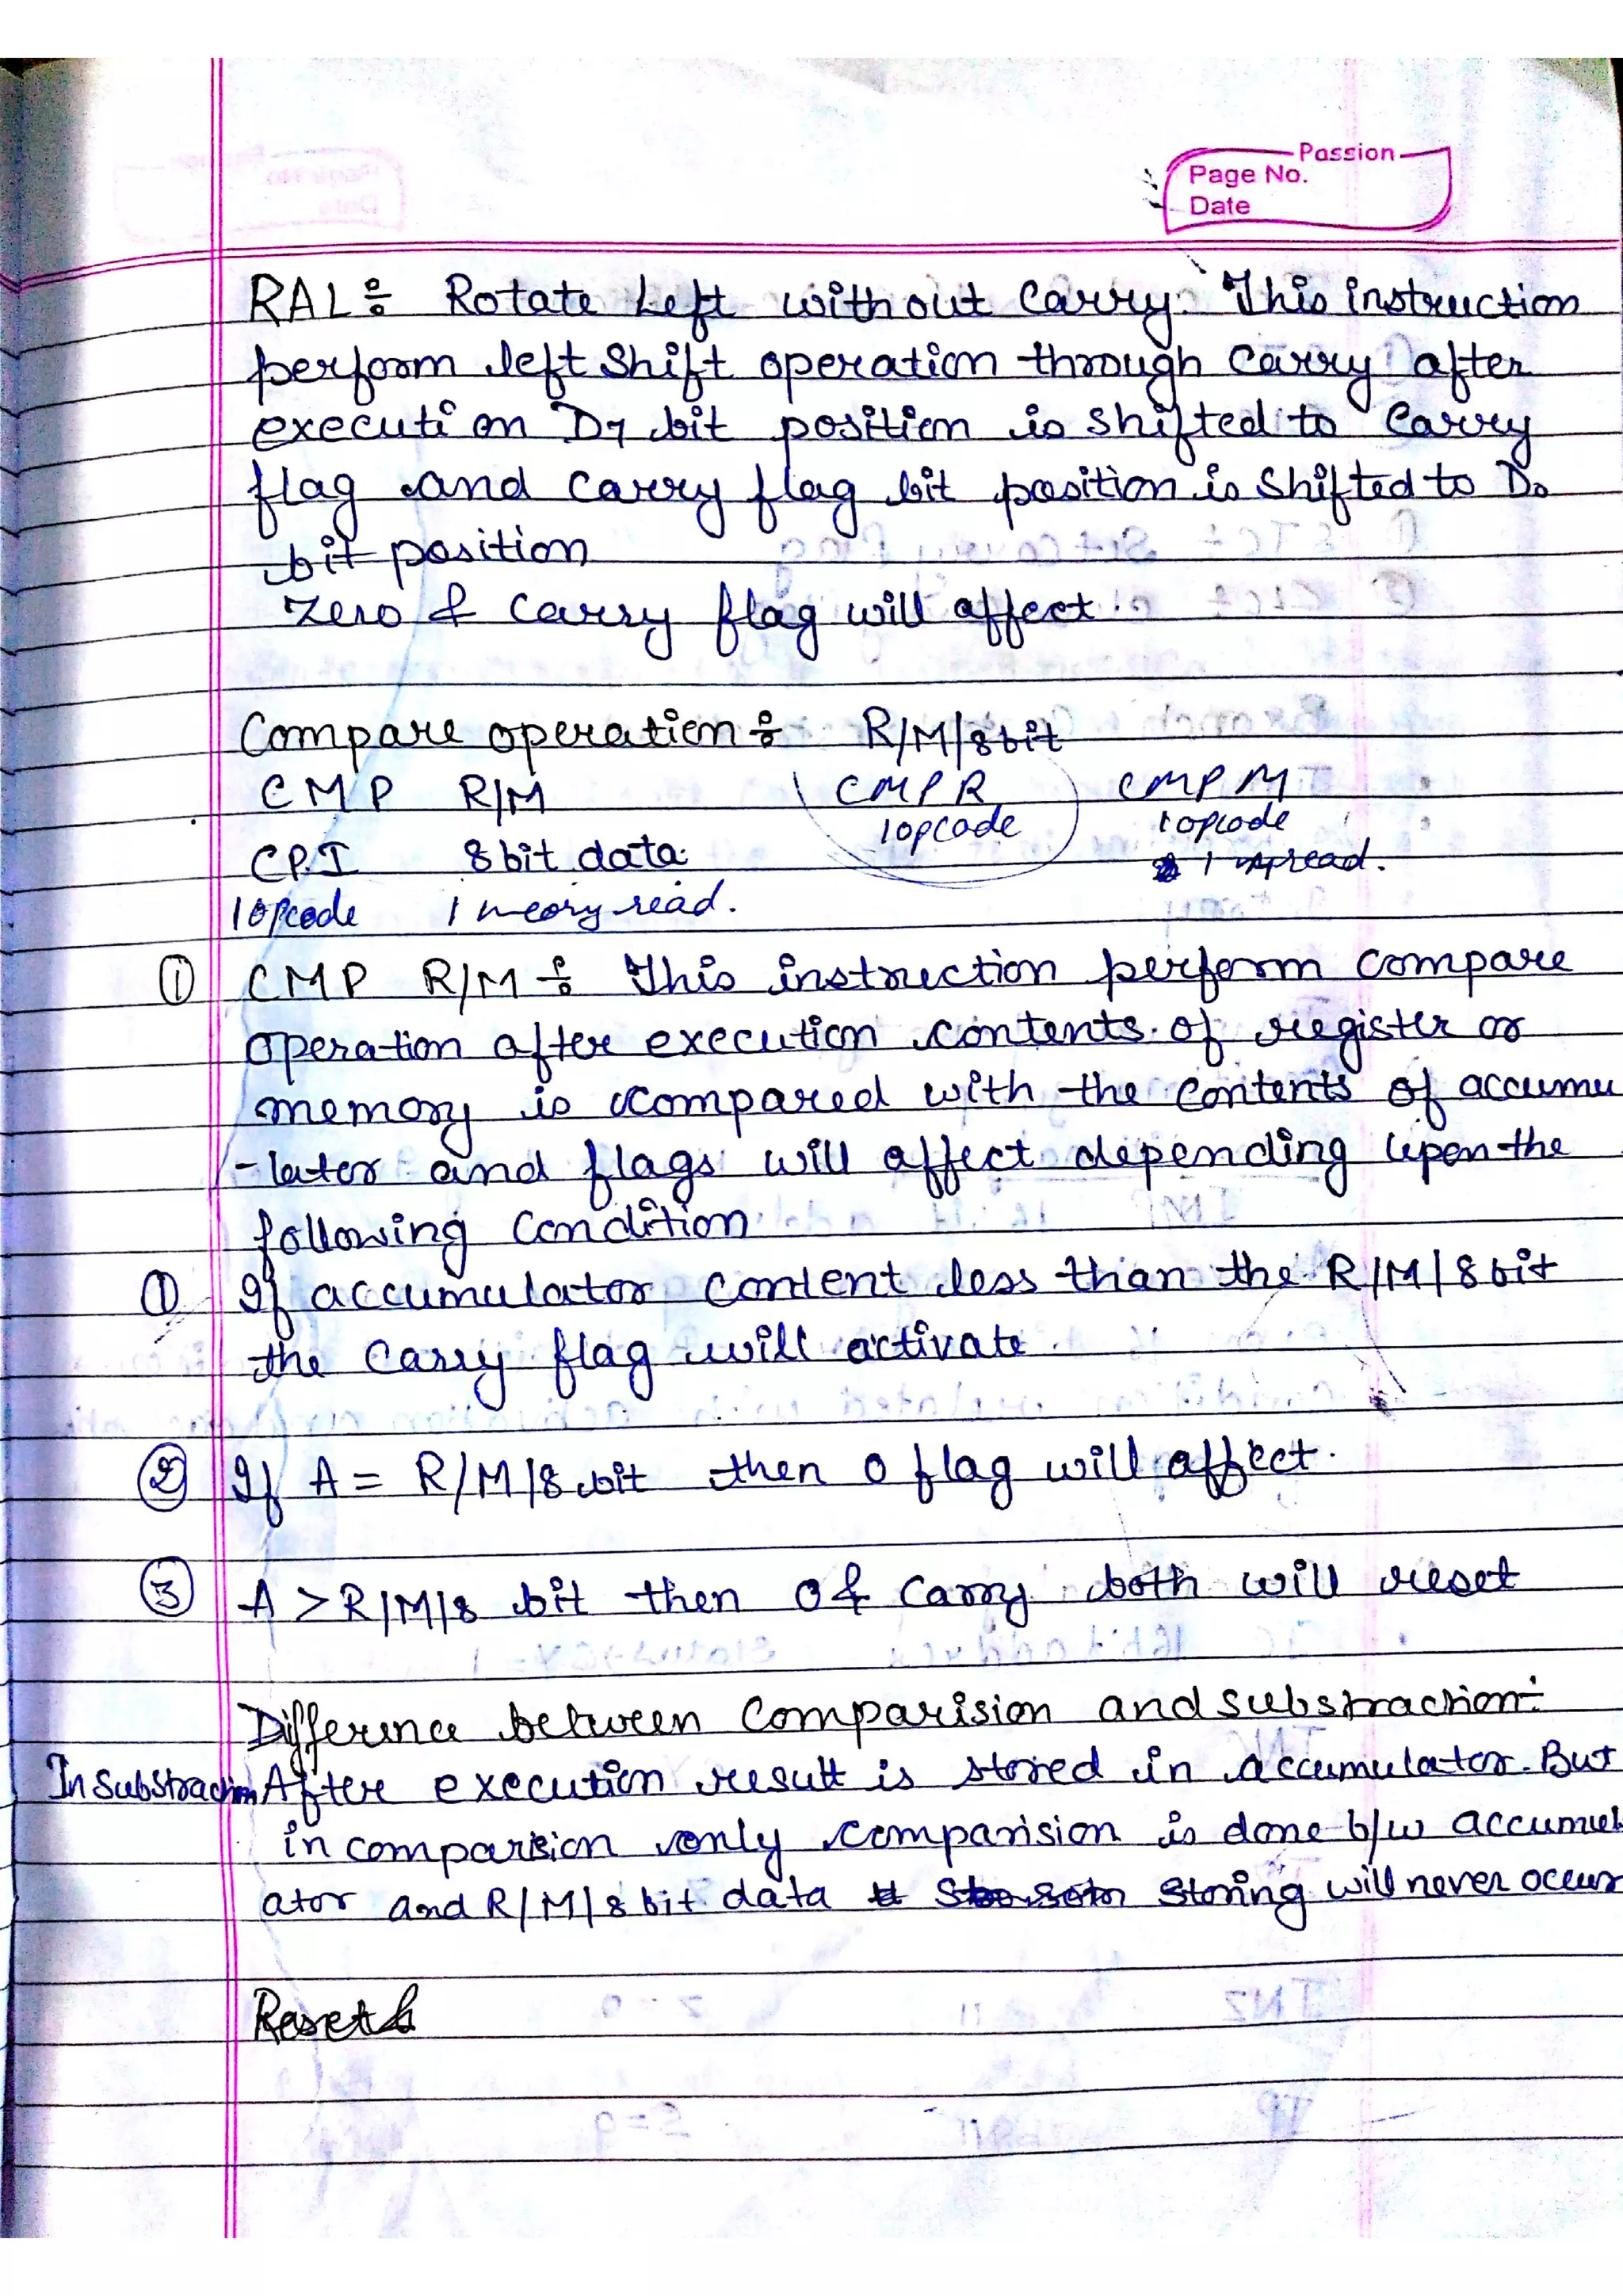 Passion
Page No.
Date
RAL÷ Rotate Left without Carry. This instruction
perform left shift operation through Carry after
execution D7 bit position is shifted to Carry
flag and carry flag bit position is shifted to D0
bit position
Zero & carry flag will affect.
Compare operation÷ R/M/8bit
CMP R/M CMP R CMP M
1opcode 1opcode
CPI 8bit data. 1 read.
1opcode 1 meory read.
① CMP R/M÷ This instruction perform compare
operation after execution contents of register or
memory is compared with the contents of accumu
-lator and flags will affect depending upon the
following Condition
① If accumulator content less than the R/M/8bit
the Carry flag will activate.
② If A = R/M/8 bit then 0 flag will affect.
③ A > R/M/8 bit then 0 & Carry both will reset
Difference between Comparision and substraction÷
In Substraction After execution result is stored in accumulator. But
in comparision only comparision is done b/w accumul
ator and R/M/8 bit data storing will never occur
Reset